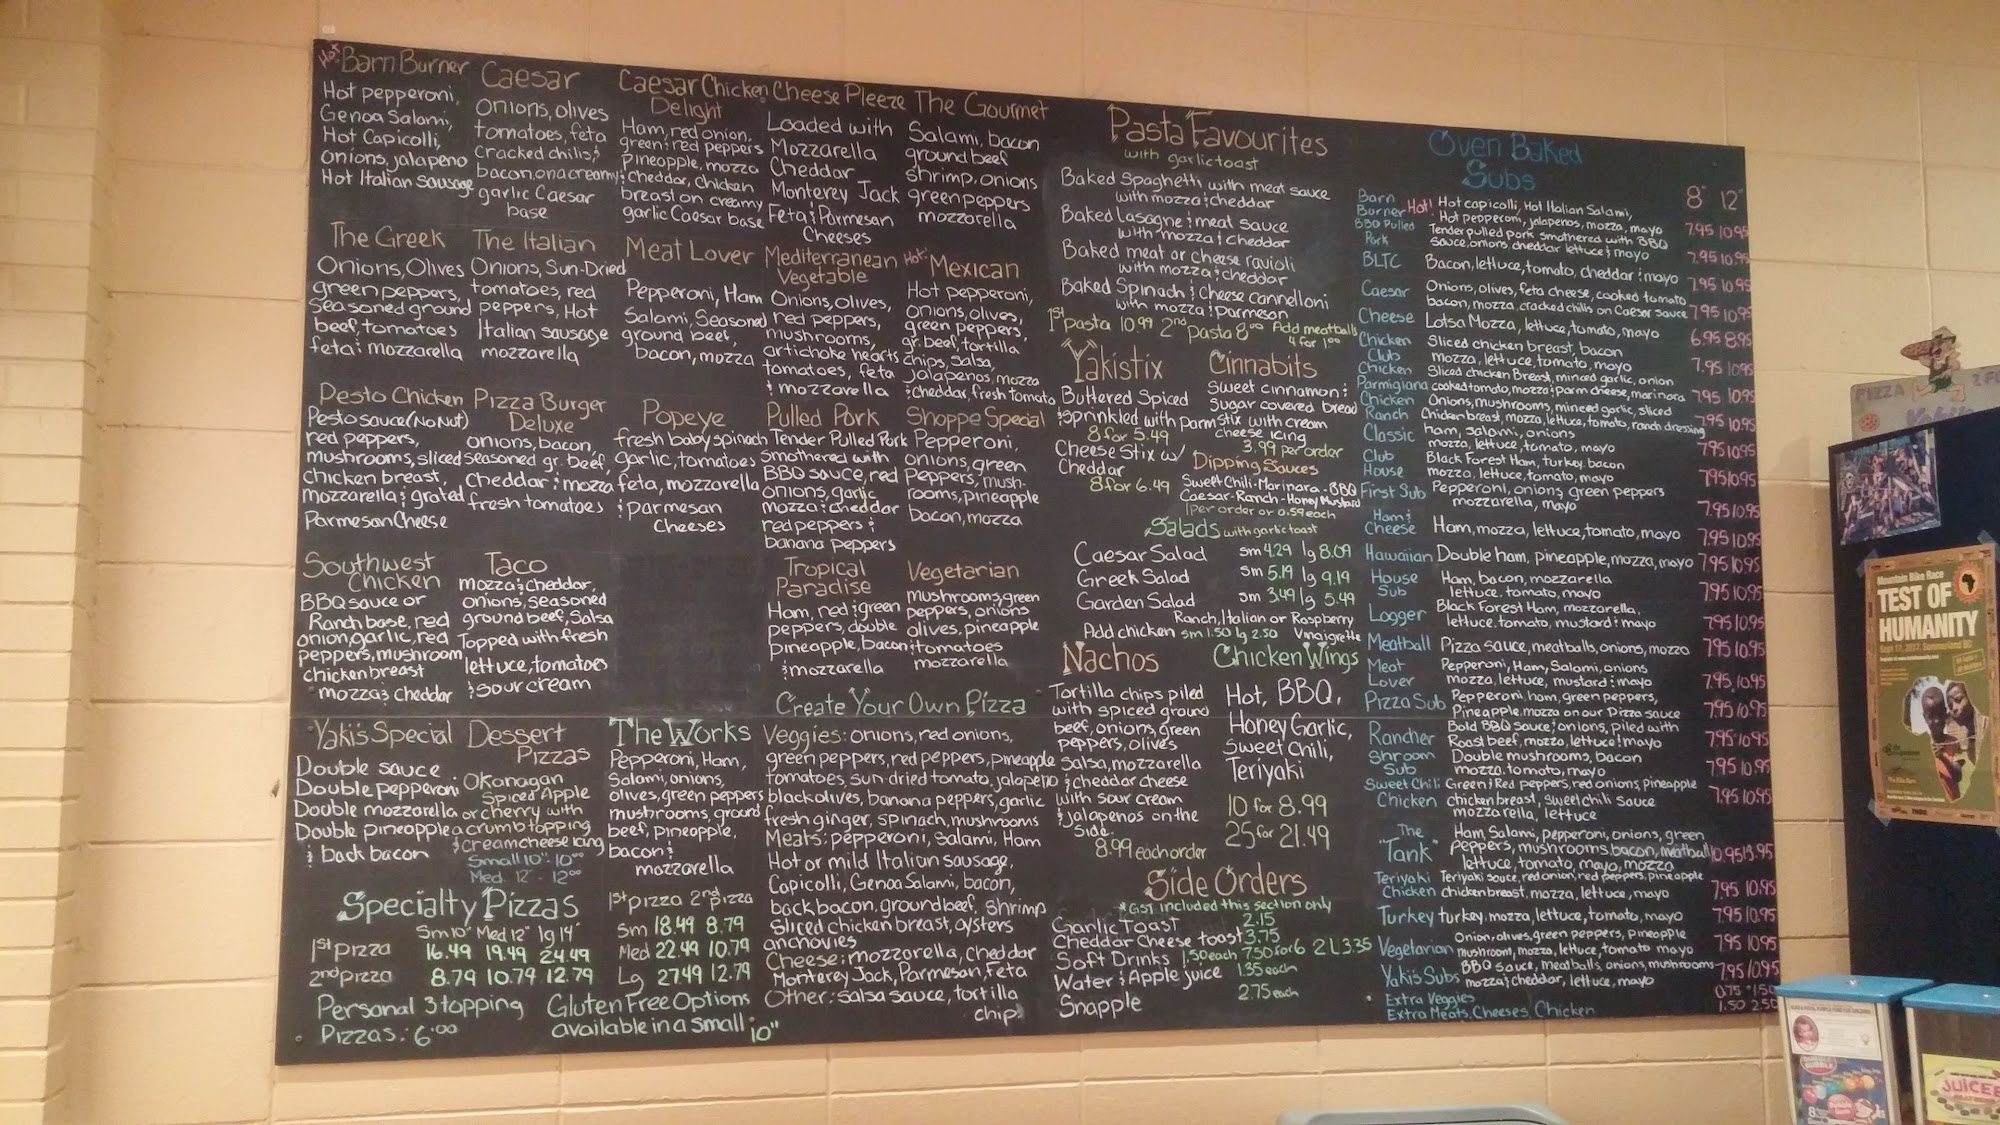 Hot Barn Burner
Hot pepperoni,
Genoa Salami,
Hot Capicolli,
Onions, jalapeno
Hot Italian Sausage
Caesar
Onions, olives
tomatoes, feta
cracked chilis &
bacon, on a creamy
garlic Caesar
base
Caesar Chicken
Delight
Ham, red onion,
green & red peppers
Pineapple, mozza
& cheddar, chicken
breast on creamy
garlic Caesar base
Cheese Pleeze
Loaded with
Mozzarella
Cheddar
Monterey Jack
Feta & Parmesan
Cheeses
The Gourmet
Salami, bacon
ground beef
shrimp, onions
green peppers
mozzarella
The Greek
Onions, Olives
green peppers,
Seasoned ground
beef, tomatoes
feta & mozzarella
The Italian
Onions, Sun-Dried
tomatoes, red
peppers, Hot
Italian sausage
mozzarella
Meat Lover
Pepperoni, Ham
Salami, Seasoned
ground beef,
bacon, mozza
Mediterranean
Vegetable
Onions, olives,
red peppers,
mushrooms,
artichoke hearts
tomatoes, feta
& mozzarella
Hot! Mexican
Hot pepperoni,
onions, olives,
green peppers,
gr. beef, tortilla
chips, salsa,
jalapenos, mozza
& cheddar, fresh tomato
Pesto Chicken
Pesto sauce (No Nut)
red peppers,
mushrooms, sliced
chicken breast,
mozzarella & grated
Parmesan Cheese
Pizza Burger
Deluxe
onions, bacon,
Seasoned gr. beef,
Cheddar & mozza
fresh tomatoes
Popeye
fresh baby spinach
garlic, tomatoes
feta, mozzarella
& parmesan
Cheeses
Pulled Pork
Tender Pulled Pork
Smothered with
BBQ sauce, red
onions, garlic
mozza & cheddar
red peppers &
banana peppers
Shoppe Special
Pepperoni,
onions, green
Peppers, mush-
rooms, pineapple
bacon, mozza
Southwest
Chicken
BBQ sauce or
Ranch base, red
onion, garlic, red
peppers, mushroom
chicken breast
mozza & cheddar
Taco
mozza & cheddar,
onions, seasoned
ground beef, Salsa
Topped with fresh
lettuce, tomatoes
& sour cream
Tropical
Paradise
Ham, red & green
peppers, double
pineapple, bacon
& mozzarella
Vegetarian
mushrooms, green
peppers, onions
olives, pineapple
& tomatoes
mozzarella
Yaki's Special
Double sauce
Double pepperoni
Double mozzarella
Double pineapple
& back bacon
Dessert
Pizzas
Okanagan
Spiced Apple
or cherry with
a crumb topping
& cream cheese icing
Small 10" 10.00
Med. 12" - 12.00
The Works
Pepperoni, Ham,
Salami, onions,
olives, green peppers
mushrooms, ground
beef, pineapple,
bacon &
mozzarella
1st pizza 2nd pizza
Sm 18.49 8.79
Med 22.49 10.79
Lg 27.49 12.79
Specialty Pizzas
Sm 10" Med 12" lg 14"
1st pizza 16.49 19.49 24.49
2nd pizza 8.79 10.79 12.79
Personal 3 topping
Pizzas: 6.00
Gluten Free Options
available in a small 10"
Create Your Own Pizza
Veggies: onions, red onions,
green peppers, red peppers, pineapple
tomatoes, sun dried tomato, jalapeno
black olives, banana peppers, garlic
fresh ginger, spinach, mushrooms
Meats: pepperoni, Salami, Ham
Hot or mild Italian sausage,
Capicolli, Genoa Salami, bacon,
back bacon, ground beef, shrimp
sliced chicken breast, oysters
anchovies
Cheese: mozzarella, cheddar
Monterey Jack, Parmesan, Feta
Other: salsa sauce, tortilla
chip
Pasta Favourites
with garlic toast
Baked Spaghetti with meat sauce
with mozza & cheddar
Baked Lasagne & meat sauce
with mozza & cheddar
Baked meat or cheese ravioli
with mozza & cheddar
Baked Spinach & Cheese cannelloni
with mozza & parmesan
1st pasta 10.99 2nd pasta 8.00 Add meatballs
4 for 1.00
Yakistix
Buttered Spiced
& sprinkled with parm
8 for 5.49
Cheese Stix w/
Cheddar
8 for 6.49
Cinnabits
Sweet cinnamon &
Sugar covered bread
stix with cream
cheese icing
3.99 per order
Dipping Sauces
Sweet Chili-Marinara-BBQ
Caesar-Ranch-Honey Mustard
1 per order or 0.59 each
Salads with garlic toast
Caesar Salad sm 4.29 lg 8.09
Greek Salad sm 5.19 lg 9.19
Garden Salad sm 3.49 lg 5.49
Ranch, Italian or Raspberry
Vinaigrette
Add chicken sm 1.50 lg 2.50
Nachos
Tortilla chips piled
with spiced ground
beef, onions, green
peppers, olives
salsa, mozzarella
& cheddar cheese
with sour cream
& jalapenos on the
side.
8.99 each order
Chicken Wings
Hot, BBQ,
Honey Garlic,
Sweet Chili,
Teriyaki
10 for 8.99
25 for 21.49
Side Orders
*GST included this section only
Garlic Toast 2.15
Cheddar Cheese toast 3.75
Soft Drinks 1.50 each 7.50 for 6 2L 3.35
Water & Apple juice 1.35 each
Snapple 2.75 each
Oven Baked
Subs
8" 12"
Barn Burner Hot! Hot capicolli, Hot Italian Salami,
Hot pepperoni, jalapenos, mozza, mayo 7.95 10.95
BBQ Pulled Pork Tender pulled pork smothered with BBQ
sauce, onions, cheddar lettuce & mayo 7.95 10.95
BLTC Bacon, lettuce, tomato, cheddar & mayo 7.95 10.95
Caesar Onions, olives, feta cheese, cooked tomato
bacon, mozza cracked chilis on Caesar sauce 7.95 10.95
Cheese Lotsa Mozza, lettuce, tomato, mayo 6.95 8.95
Chicken Club Sliced chicken breast, bacon
mozza, lettuce, tomato, mayo 7.95 10.95
Chicken Parmigiana Sliced chicken Breast, minced garlic, onion
cooked tomato, mozza & parm cheese, marinara 7.95 10.95
Chicken Ranch Onions, mushrooms, minced garlic, sliced
Chicken breast, mozza, lettuce, tomato, ranch dressing 7.95 10.95
Classic ham, salami, onions
mozza, lettuce, tomato, mayo 7.95 10.95
Club House Black Forest Ham, turkey, bacon
mozzo, lettuce, tomato, mayo 7.95 10.95
First Sub Pepperoni, onions, green peppers
mozzarella, mayo 7.95 10.95
Ham & Cheese Ham, mozza, lettuce, tomato, mayo 7.95 10.95
Hawaiian Double ham, pineapple, mozza, mayo 7.95 10.95
House Sub Ham, bacon, mozzarella
lettuce, tomato, mayo 7.95 10.95
Logger Black Forest Ham, mozzarella,
lettuce, tomato, mustard & mayo 7.95 10.95
Meatball Pizza sauce, meatballs, onions, mozza 7.95 10.95
Meat Lover Pepperoni, Ham, Salami, onions
mozza, lettuce, mustard & mayo 7.95 10.95
Pizza Sub Pepperoni, ham, green peppers,
Pineapple, mozza on our Pizza sauce 7.95 10.95
Rancher Bold BBQ sauce, onions, piled with
Roast beef, mozza, lettuce & mayo 7.95 10.95
Shroom Sub Double mushrooms, bacon
mozza, tomato, mayo 7.95 10.95
Sweet Chili Chicken Green & Red peppers, red onions, pineapple
chicken breast, sweet chili sauce
mozzarella, lettuce 7.95 10.95
The "Tank" Ham, Salami, pepperoni, onions, green
peppers, mushrooms, bacon, meatball
lettuce, tomato, mayo, mozza 10.95 13.95
Teriyaki Chicken Teriyaki sauce, red onion, red peppers, pineapple
chicken breast, mozza, lettuce, mayo 7.95 10.95
Turkey turkey, mozza, lettuce, tomato, mayo 7.95 10.95
Vegetarian Onion, olives, green peppers, pineapple
mushroom, mozza, lettuce, tomato mayo 7.95 10.95
Yaki's Subs BBQ sauce, Meatballs, onions, mushrooms
mozza & cheddar, lettuce, mayo 7.95 10.95
Extra Veggies 0.75 1.50
Extra Meats, Cheeses, Chicken 1.50 2.50
PIZZA
Mountain Bike Race
TEST OF
HUMANITY
Sept 17, 2017, Summerland BC
JUICEE